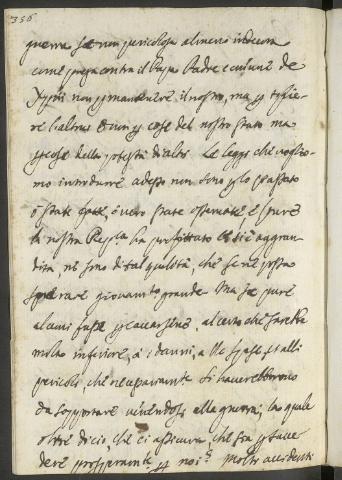 356
guerra se non pericolosa almeno indecora
come presa contra il Papa Padre comune de
Xpiani non p mantenere il nostro, ma p toglie-
re l'altrui & non p cose del nostro stato ma
p cose della potestà d'altri. Le leggi che voglio-
mo introdurre adesso non sono p lo passato
ò state fatte, ò vero state osservate, e pure
la nostra Rep.ca ha profittato et si è aggran-
dita, ne sono di tal qualità, che se ne possa
sperare giovam.to grande. Ma se pure
alcuni fusse p cavarsene, al certo che sarebbe
molto inferiore, à i danni, alle spese, et alli
pericoli, che necessariamte si haverebbono
da sopportare venendosi alla guerra, la quale
oltre di ciò, chi ci assicura che sia p succe
dere prosperamte p noi? molti accidenti